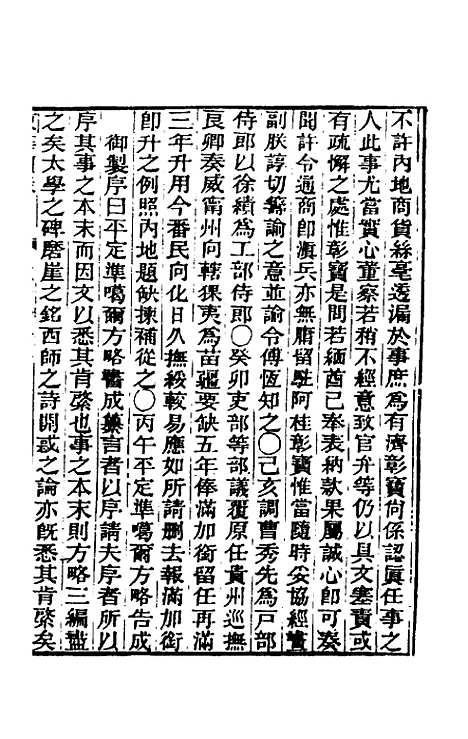 不許內地商貨絲毫透漏於事庶為有濟彰寶尚係認眞任事之
人此事尤當實心董察若稍不經意致官弁等仍以具文塞責或
有疏懈之處惟彰寶是問若緬酋已奉表納款果屬誠心卽可奏
聞許令通商卽滇兵亦無庸留駐阿桂彰寶惟當隨時妥協經畫
副朕諄切籌諭之意並諭令傅恆知之〇己亥調曹秀先為戸部
侍郎以徐績為工部侍郎〇癸卯吏部等部議覆原任貴州巡撫
良卿奏威甯州向轄猓夷為苗疆要缺五年俸滿加銜留任再滿
三年升用今番民向化日久撫綏較易應如所請刪去報滿加銜
卽升之例照內地題缺揀補從之〇丙午平定準噶爾方略告成
御製序曰平定準噶爾方略書成纂言者以序請夫序者所以
序其事之本末而因文以悉其肯綮也事之本末則方略三編盡
之矣太學之碑磨崖之銘西師之詩開惑之論亦旣悉其肯綮矣